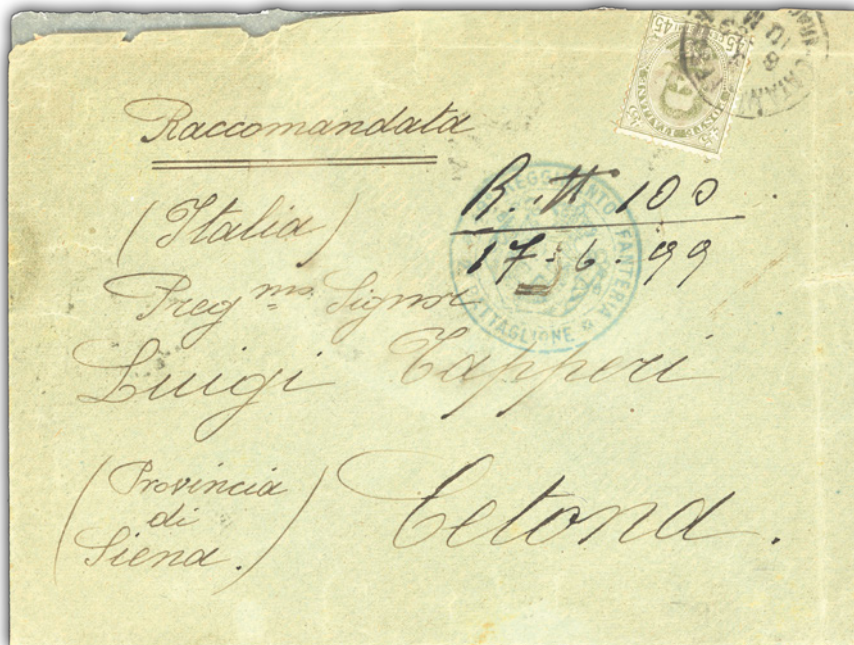 45 45
Raccomandata
R. # 100
17-6.99
(Italia)
REGGIMENTO FANTERIA
BATTAGLIONE
Preg.mo Signor
Luigi Tapperi
(Provincia
di
Siena.)
Cetona.